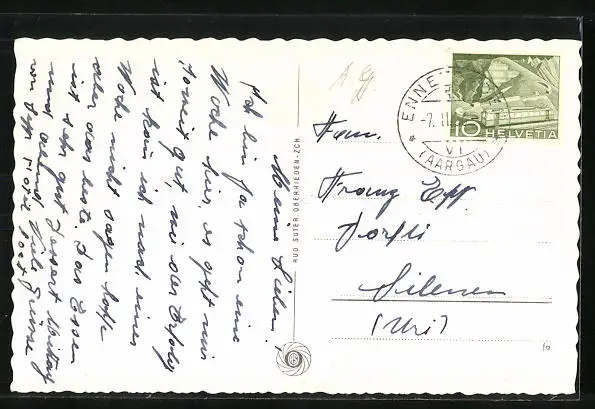 Meine Lieben!
Ich bin ja schon eine
Woche hier, es geht mir
soweit gut, wie der Erfolg
ist kann ich nach einer
Woche nicht sagen hoffe
aber das beste. Das Essen
ist sehr gut Dessert Mittag
und abend. Viele Grüsse
von
RUD SUTER OBERRIEDEN-ZCH
ENNE
-7. II
VI
(AARGAU)
10 HELVETIA
Fam.
Franz Epp
Dörfli
Silenen
(Uri)